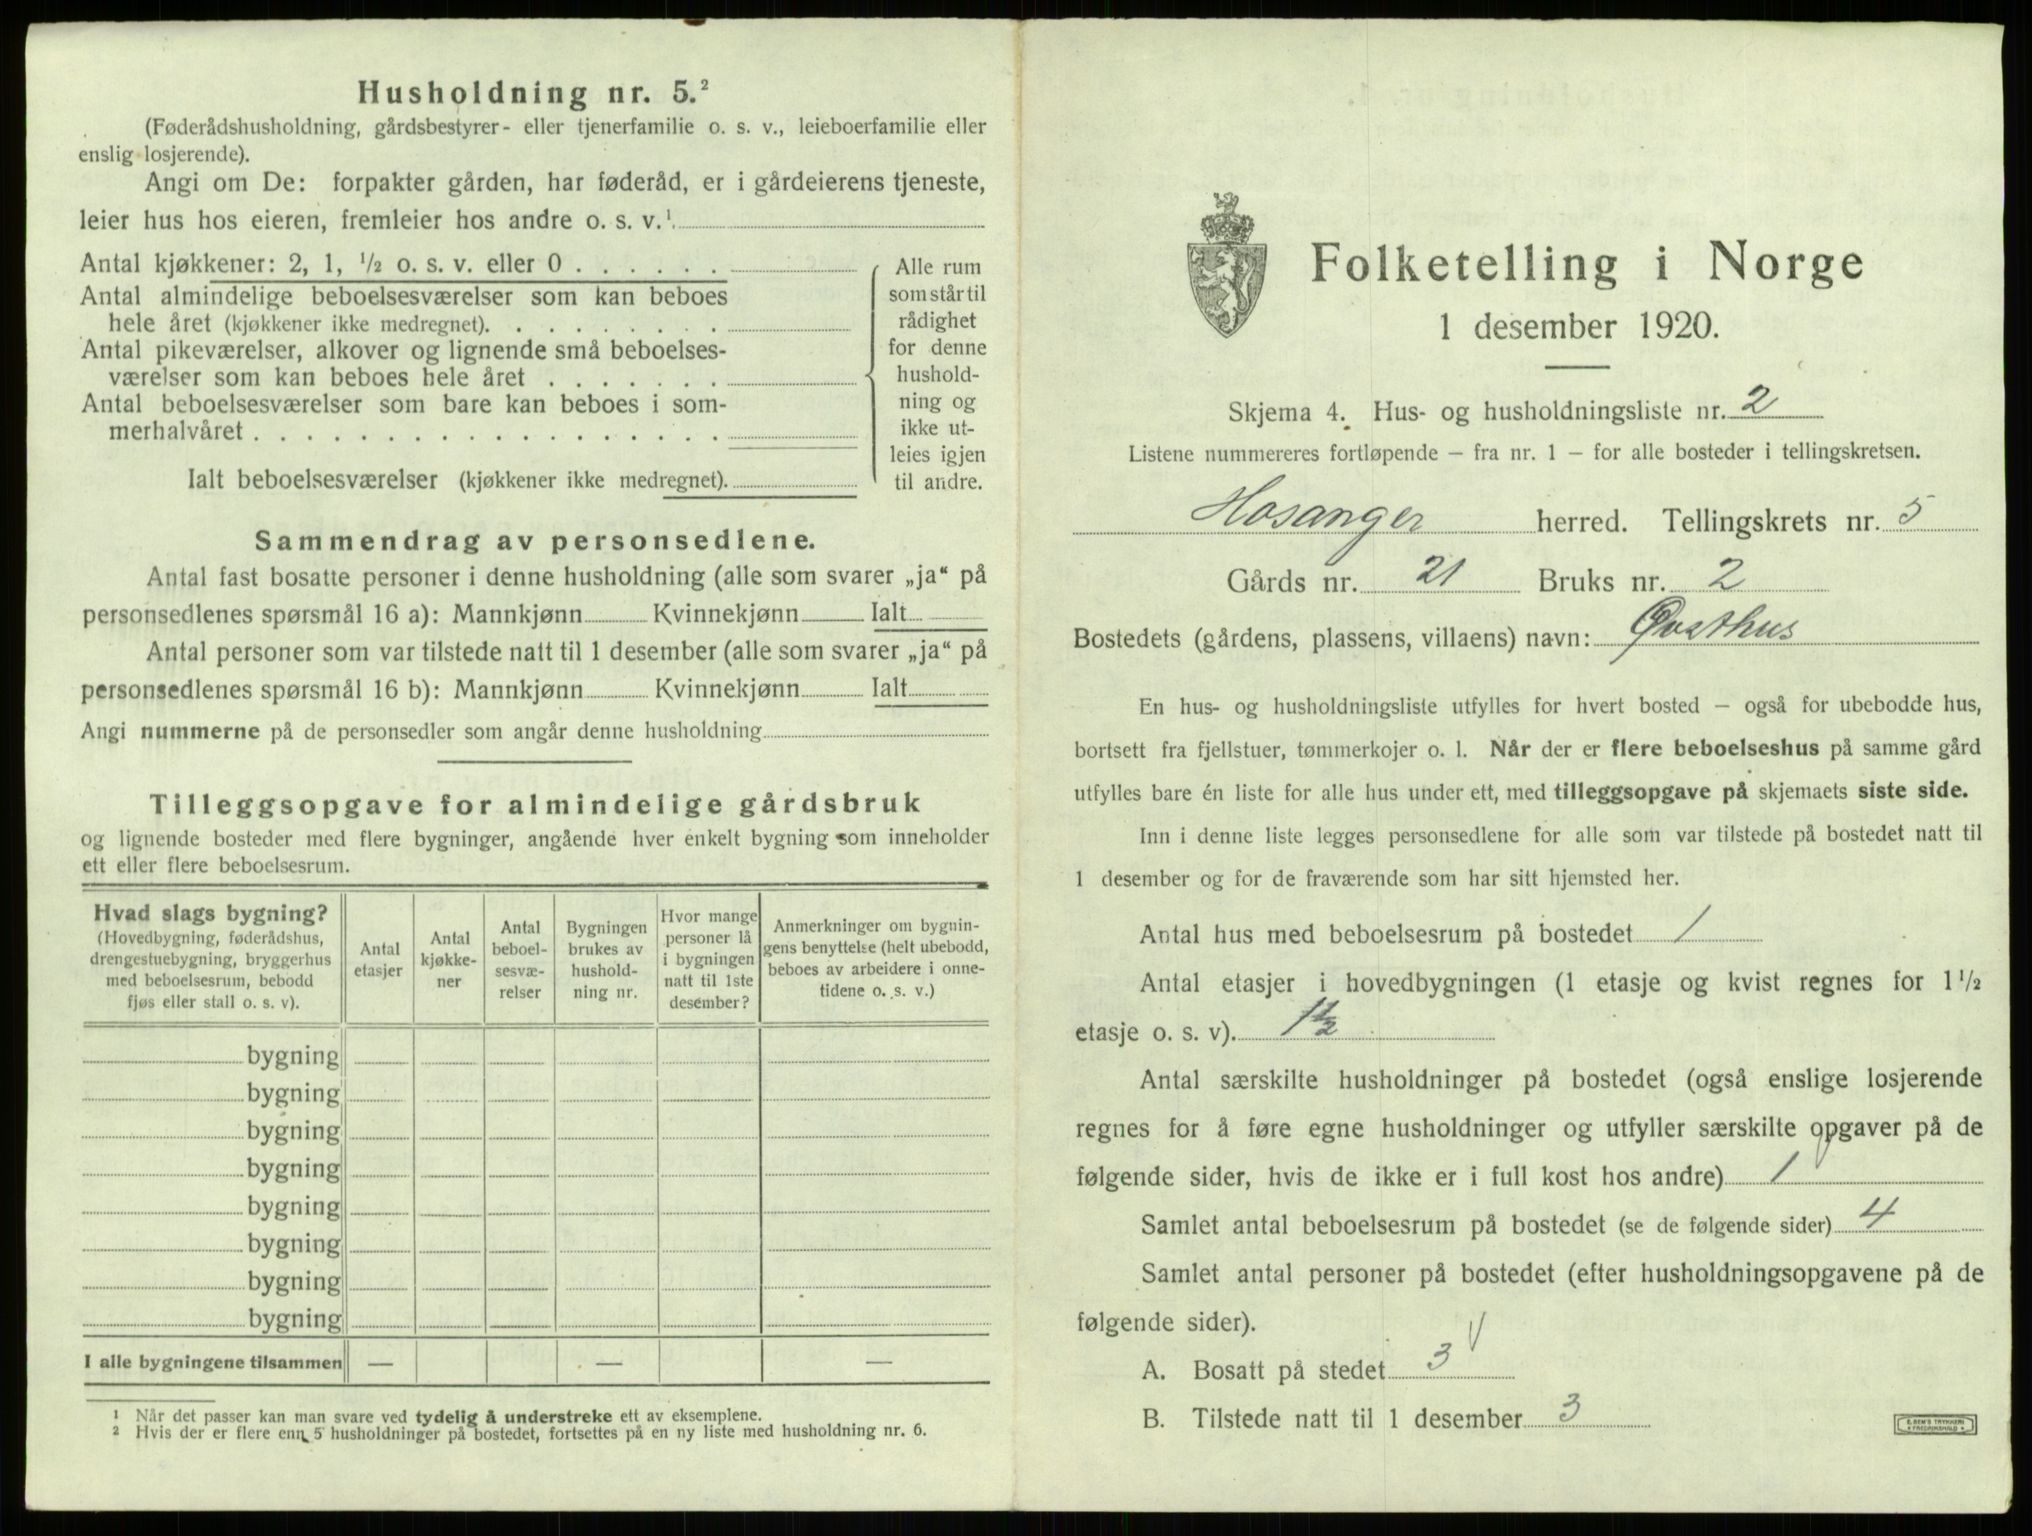 Husholdning nr. 5.²
(Føderådshusholdning, gårdsbestyrer- eller tjenerfamilie o. s. v., leieboerfamilie eller
enslig losjerende).
Angi om De: forpakter gården, har føderåd, er i gårdeierens tjeneste,
leier hus hos eieren, fremleier hos andre o. s. v.¹
Antal kjøkkener: 2, 1, ½ o. s. v. eller 0 . . . . . .
Antal almindelige beboelsesværelser som kan beboes
hele året (kjøkkener ikke medregnet). . . . . . . . .
Antal pikeværelser, alkover og lignende små beboelses-
værelser som kan beboes hele året . . . . . . .
Antal beboelsesværelser som bare kan beboes i som-
merhalvåret . . . . . . . . . . . . . . . . . .
Ialt beboelsesværelser (kjøkkener ikke medregnet).
Alle rum
som står til
rådighet
for denne
hushold-
ning og
ikke ut-
leies igjen
til andre.
Sammendrag av personsedlene.
Antal fast bosatte personer i denne husholdning (alle som svarer „ja“ på
personsedlenes spørsmål 16 a): Mannkjønn Kvinnekjønn Ialt
Antal personer som var tilstede natt til 1 desember (alle som svarer „ja“ på
personsedlenes spørsmål 16 b): Mannkjønn Kvinnekjønn Ialt
Angi nummerne på de personsedler som angår denne husholdning
Tilleggsopgave for almindelige gårdsbruk
og lignende bosteder med flere bygninger, angående hver enkelt bygning som inneholder
ett eller flere beboelsesrum.
Hvad slags bygning?
(Hovedbygning, føderådshus,
drengestuebygning, bryggerhus
med beboelsesrum, bebodd
fjøs eller stall o. s. v).
Antal
etasjer
Antal
kjøkke-
ner
Antal
beboel-
sesvæ-
relser
Bygningen
brukes av
hushold-
ning nr.
Hvor mange
personer lå
i bygningen
natt til 1ste
desember?
Anmerkninger om bygnin-
gens benyttelse (helt ubebodd,
beboes av arbeidere i onne-
tidene o. s. v.)
bygning
bygning
bygning
bygning
bygning
bygning
bygning
bygning
I alle bygningene tilsammen — — —
¹ Når det passer kan man svare ved tydelig å understreke ett av eksemplene.
² Hvis der er flere enn 5 husholdninger på bostedet, fortsettes på en ny liste med husholdning nr. 6.
Folketelling i Norge
1 desember 1920.
Skjema 4. Hus- og husholdningsliste nr. 2
Listene nummereres fortløpende – fra nr. 1 – for alle bosteder i tellingskretsen.
Hosanger herred. Tellingskrets nr. 5
Gårds nr. 21 Bruks nr. 2
Bostedets (gårdens, plassens, villaens) navn: Øvsthus
En hus- og husholdningsliste utfylles for hvert bosted – også for ubebodde hus,
bortsett fra fjellstuer, tømmerkojer o. l. Når der er flere beboelseshus på samme gård
utfylles bare én liste for alle hus under ett, med tilleggsopgave på skjemaets siste side.
Inn i denne liste legges personsedlene for alle som var tilstede på bostedet natt til
1 desember og for de fraværende som har sitt hjemsted her.
Antal hus med beboelsesrum på bostedet 1
Antal etasjer i hovedbygningen (1 etasje og kvist regnes for 1½
etasje o. s. v). 1½
Antal særskilte husholdninger på bostedet (også enslige losjerende
regnes for å føre egne husholdninger og utfyller særskilte opgaver på de
følgende sider, hvis de ikke er i full kost hos andre) 1
Samlet antal beboelsesrum på bostedet (se de følgende sider) 4
Samlet antal personer på bostedet (efter husholdningsopgavene på de
følgende sider).
A. Bosatt på stedet 3
B. Tilstede natt til 1 desember 3